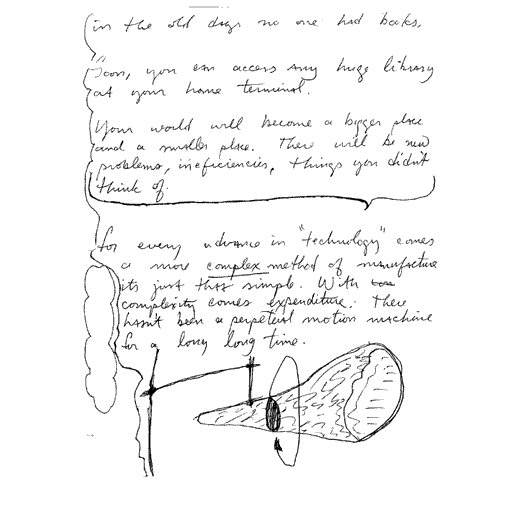 in the old days no one had books.
"Soon, you can access any huge library
at your home terminal.
Your world will become a bigger place
and a smaller place. There will be new
problems, ineficiencies, things you didn't
think of.
for every advance in "technology" comes
a more complex method of manufacture
its just that simple. With
complexity comes expenditure. There
hasn't been a perpetual motion machine
for a long long time.